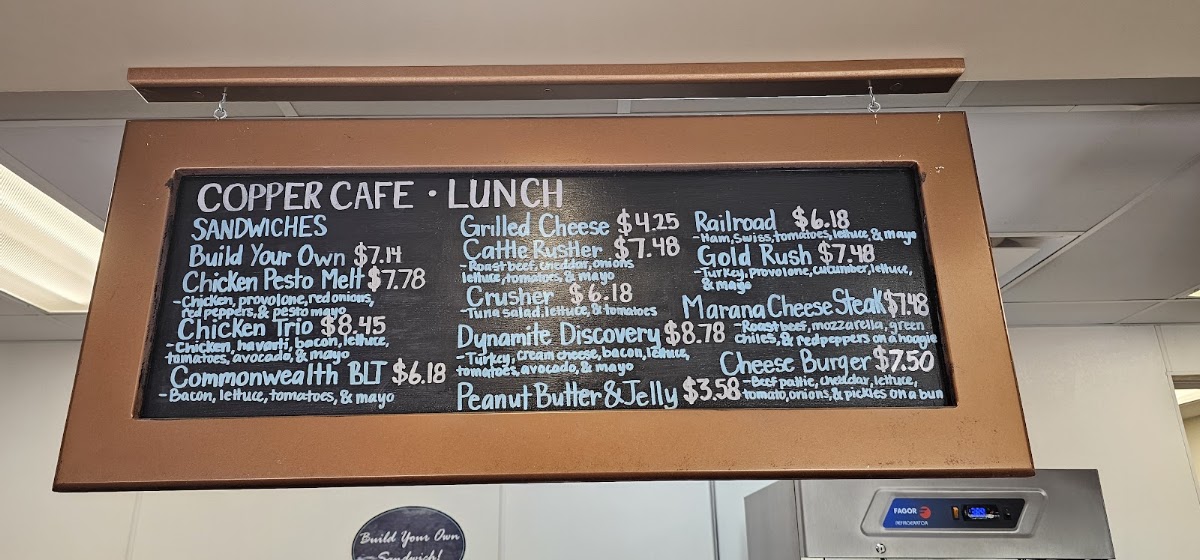 COPPER CAFE • LUNCH
SANDWICHES
Build Your Own $7.14
Chicken Pesto Melt $7.78
-Chicken, provolone, red onions,
red peppers, & pesto mayo
Chicken Trio $8.45
-Chicken, havarti, bacon, lettuce,
tomatoes, avocado, & mayo
Commonwealth BLT $6.18
-Bacon, lettuce, tomatoes, & mayo
Grilled Cheese $4.25
Cattle Rustler $7.48
-Roast beef, cheddar, onions
lettuce, tomatoes, & mayo
Crusher $6.18
-Tuna salad, lettuce, & tomatoes
Dynamite Discovery $8.78
-Turkey, cream cheese, bacon, lettuce,
tomatoes, avocado, & mayo
Peanut Butter & Jelly $3.58
Railroad $6.18
-Ham, Swiss, tomatoes, lettuce, & mayo
Gold Rush $7.48
-Turkey, provolone, cucumber, lettuce,
& mayo
Marana Cheese Steak $7.48
-Roast beef, mozzarella, green
chiles, & red peppers on a hoogie
Cheese Burger $7.50
-Beef pattie, cheddar, lettuce,
tomato, onions, & pickles on a bun
Build Your Own
Sandwich!
FAGOR
REFRIGERATOR